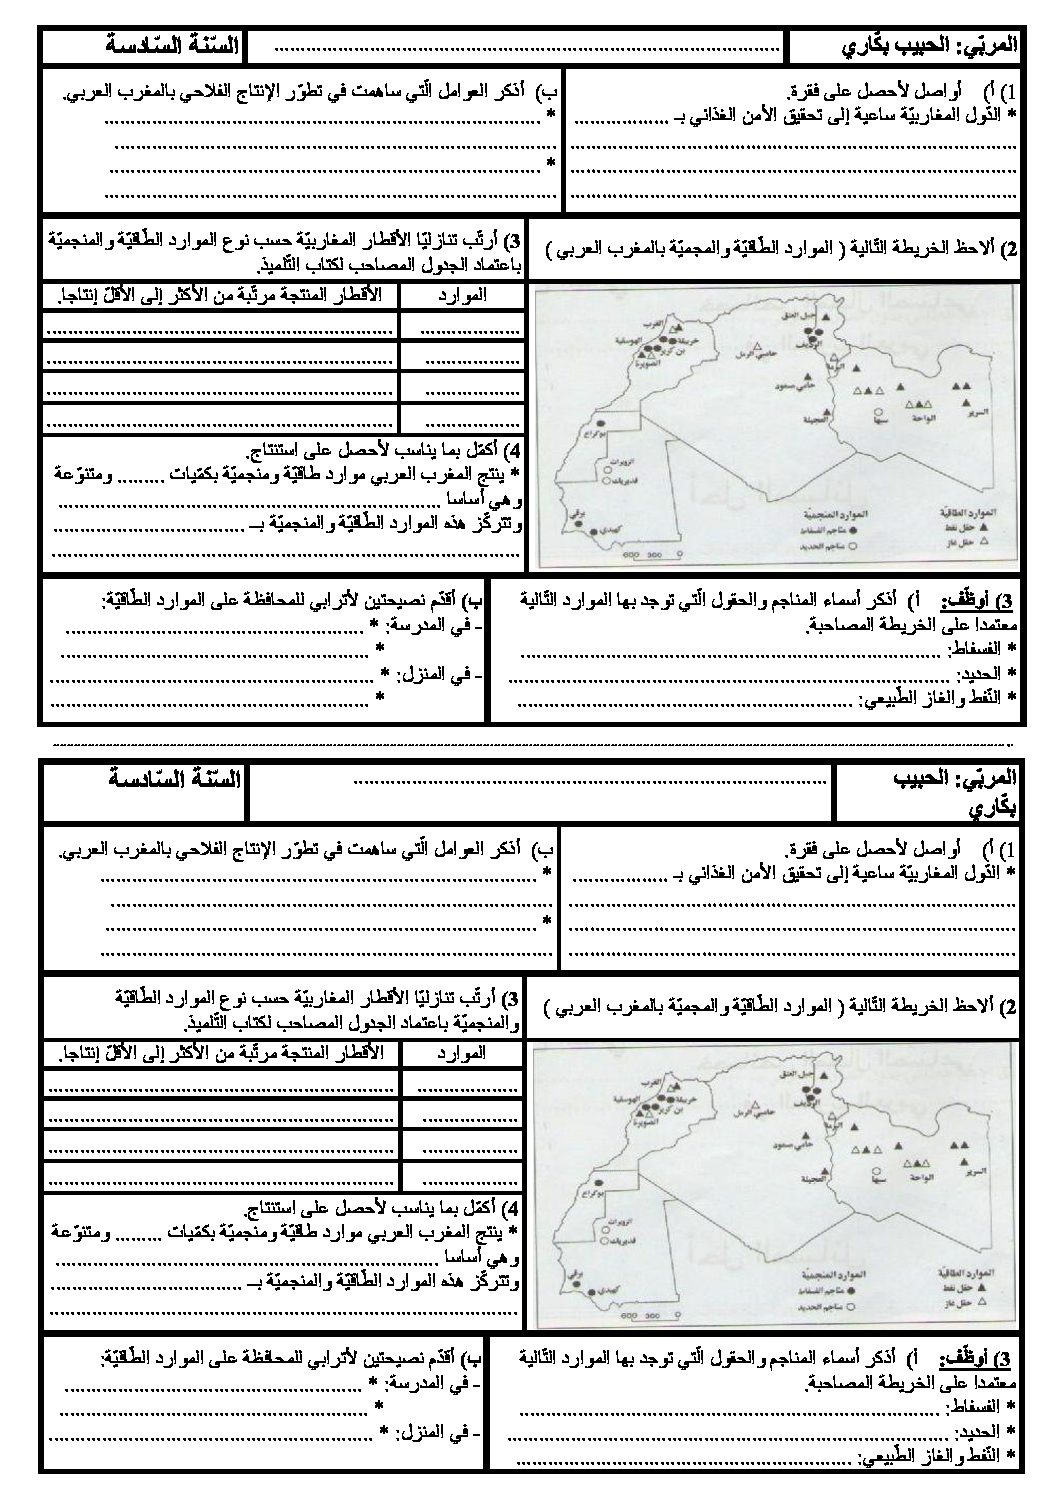 المربّي: الحبيب بكّاري
................................................
السّنة السّادسة
1) أ) أواصل لأحصل على فقرة.
* الدّول المغاربيّة ساعية إلى تحقيق الأمن الغذائي بـ .................
................................................
................................................
................................................
ب) أذكر العوامل الّتي ساهمت في تطوّر الإنتاج الفلاحي بالمغرب العربي.
* ................................................
................................................
* ................................................
................................................
2) ألاحظ الخريطة التّالية ( الموارد الطّاقيّة والمجميّة بالمغرب العربي )
جبل العنق
الرديف
المغرب
خريبقة
اليوسفية
بن كرير
الصويرة
حاسي الرمل
البرمة
حاسي مسعود
العجيلة
سبها
الواحة
السرير
بوكراع
الزويرات
فديريك
بوفي
كيهيدي
الموارد المنجميّة
مناجم الفسفاط
مناجم الحديد
الموارد الطاقيّة
حقل نفط
حقل غاز
600 300 0
3) أرتّب تنازليّا الأقطار المغاربيّة حسب نوع الموارد الطّاقيّة والمنجميّة
باعتماد الجدول المصاحب لكتاب التّلميذ.
الموارد
الأقطار المنتجة مرتّبة من الأكثر إلى الأقلّ إنتاجا.
.................. ................................................
.................. ................................................
.................. ................................................
.................. ................................................
4) أكمّل بما يناسب لأحصل على استنتاج.
* ينتج المغرب العربي موارد طاقيّة ومنجميّة بكمّيات ......... ومتنوّعة
وهي أساسا ................................................
وتتركّز هذه الموارد الطّاقيّة والمنجميّة بـ ....................................
................................................
3) أوظّف: أ) أذكر أسماء المناجم والحقول الّتي توجد بها الموارد التّالية
معتمدا على الخريطة المصاحبة.
* الفسفاط: ................................................
* الحديد: ................................................
* النّفط والغاز الطّبيعي: ................................................
ب) أقدّم نصيحتين لأترابي للمحافظة على الموارد الطّاقيّة:
- في المدرسة: * ................................................
* ................................................
- في المنزل: * ................................................
* ................................................
................................................
المربّي: الحبيب
بكّاري
................................................
السّنة السّادسة
1) أ) أواصل لأحصل على فقرة.
* الدّول المغاربيّة ساعية إلى تحقيق الأمن الغذائي بـ .................
................................................
................................................
................................................
ب) أذكر العوامل الّتي ساهمت في تطوّر الإنتاج الفلاحي بالمغرب العربي.
* ................................................
................................................
* ................................................
................................................
2) ألاحظ الخريطة التّالية ( الموارد الطّاقيّة والمجميّة بالمغرب العربي )
جبل العنق
الرديف
المغرب
خريبقة
اليوسفية
بن كرير
الصويرة
حاسي الرمل
البرمة
حاسي مسعود
العجيلة
سبها
الواحة
السرير
بوكراع
الزويرات
فديريك
بوفي
كيهيدي
الموارد المنجميّة
مناجم الفسفاط
مناجم الحديد
الموارد الطاقيّة
حقل نفط
حقل غاز
600 300 0
3) أرتّب تنازليّا الأقطار المغاربيّة حسب نوع الموارد الطّاقيّة
والمنجميّة باعتماد الجدول المصاحب لكتاب التّلميذ.
الموارد
الأقطار المنتجة مرتّبة من الأكثر إلى الأقلّ إنتاجا.
.................. ................................................
.................. ................................................
.................. ................................................
.................. ................................................
4) أكمّل بما يناسب لأحصل على استنتاج.
* ينتج المغرب العربي موارد طاقيّة ومنجميّة بكمّيات ......... ومتنوّعة
وهي أساسا ................................................
وتتركّز هذه الموارد الطّاقيّة والمنجميّة بـ ....................................
................................................
3) أوظّف: أ) أذكر أسماء المناجم والحقول الّتي توجد بها الموارد التّالية
معتمدا على الخريطة المصاحبة.
* الفسفاط: ................................................
* الحديد: ................................................
* النّفط والغاز الطّبيعي: ................................................
ب) أقدّم نصيحتين لأترابي للمحافظة على الموارد الطّاقيّة:
- في المدرسة: * ................................................
* ................................................
- في المنزل: * ................................................